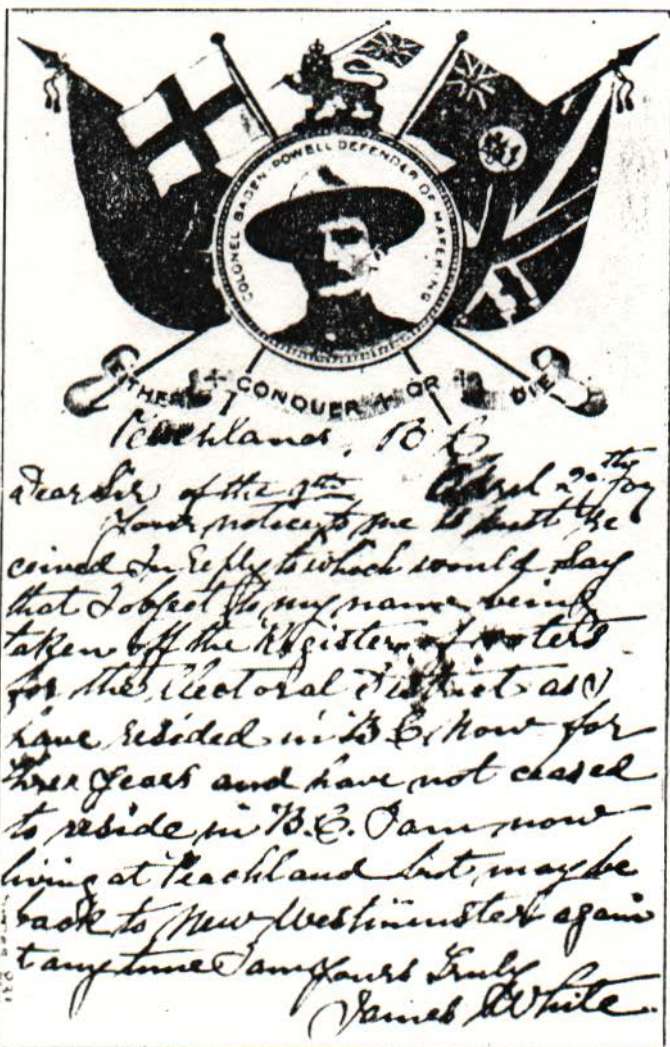 COLONEL BADEN-POWELL DEFENDER OF MAFEKING
EITHER CONQUER OR DIE
Peachland, B C
Dear Sir of the 9th April 20th 07
Your notice to me is just re
ceived In reply to which would say
that I object to my name being
taken off the Register of voters
for the Electoral District as I
have resided in B.C. now for
three years and have not ceased
to reside in B.C. I am now
living at Peachland but may be
back to New Westminster again
t any time I am Yours Truly
James White